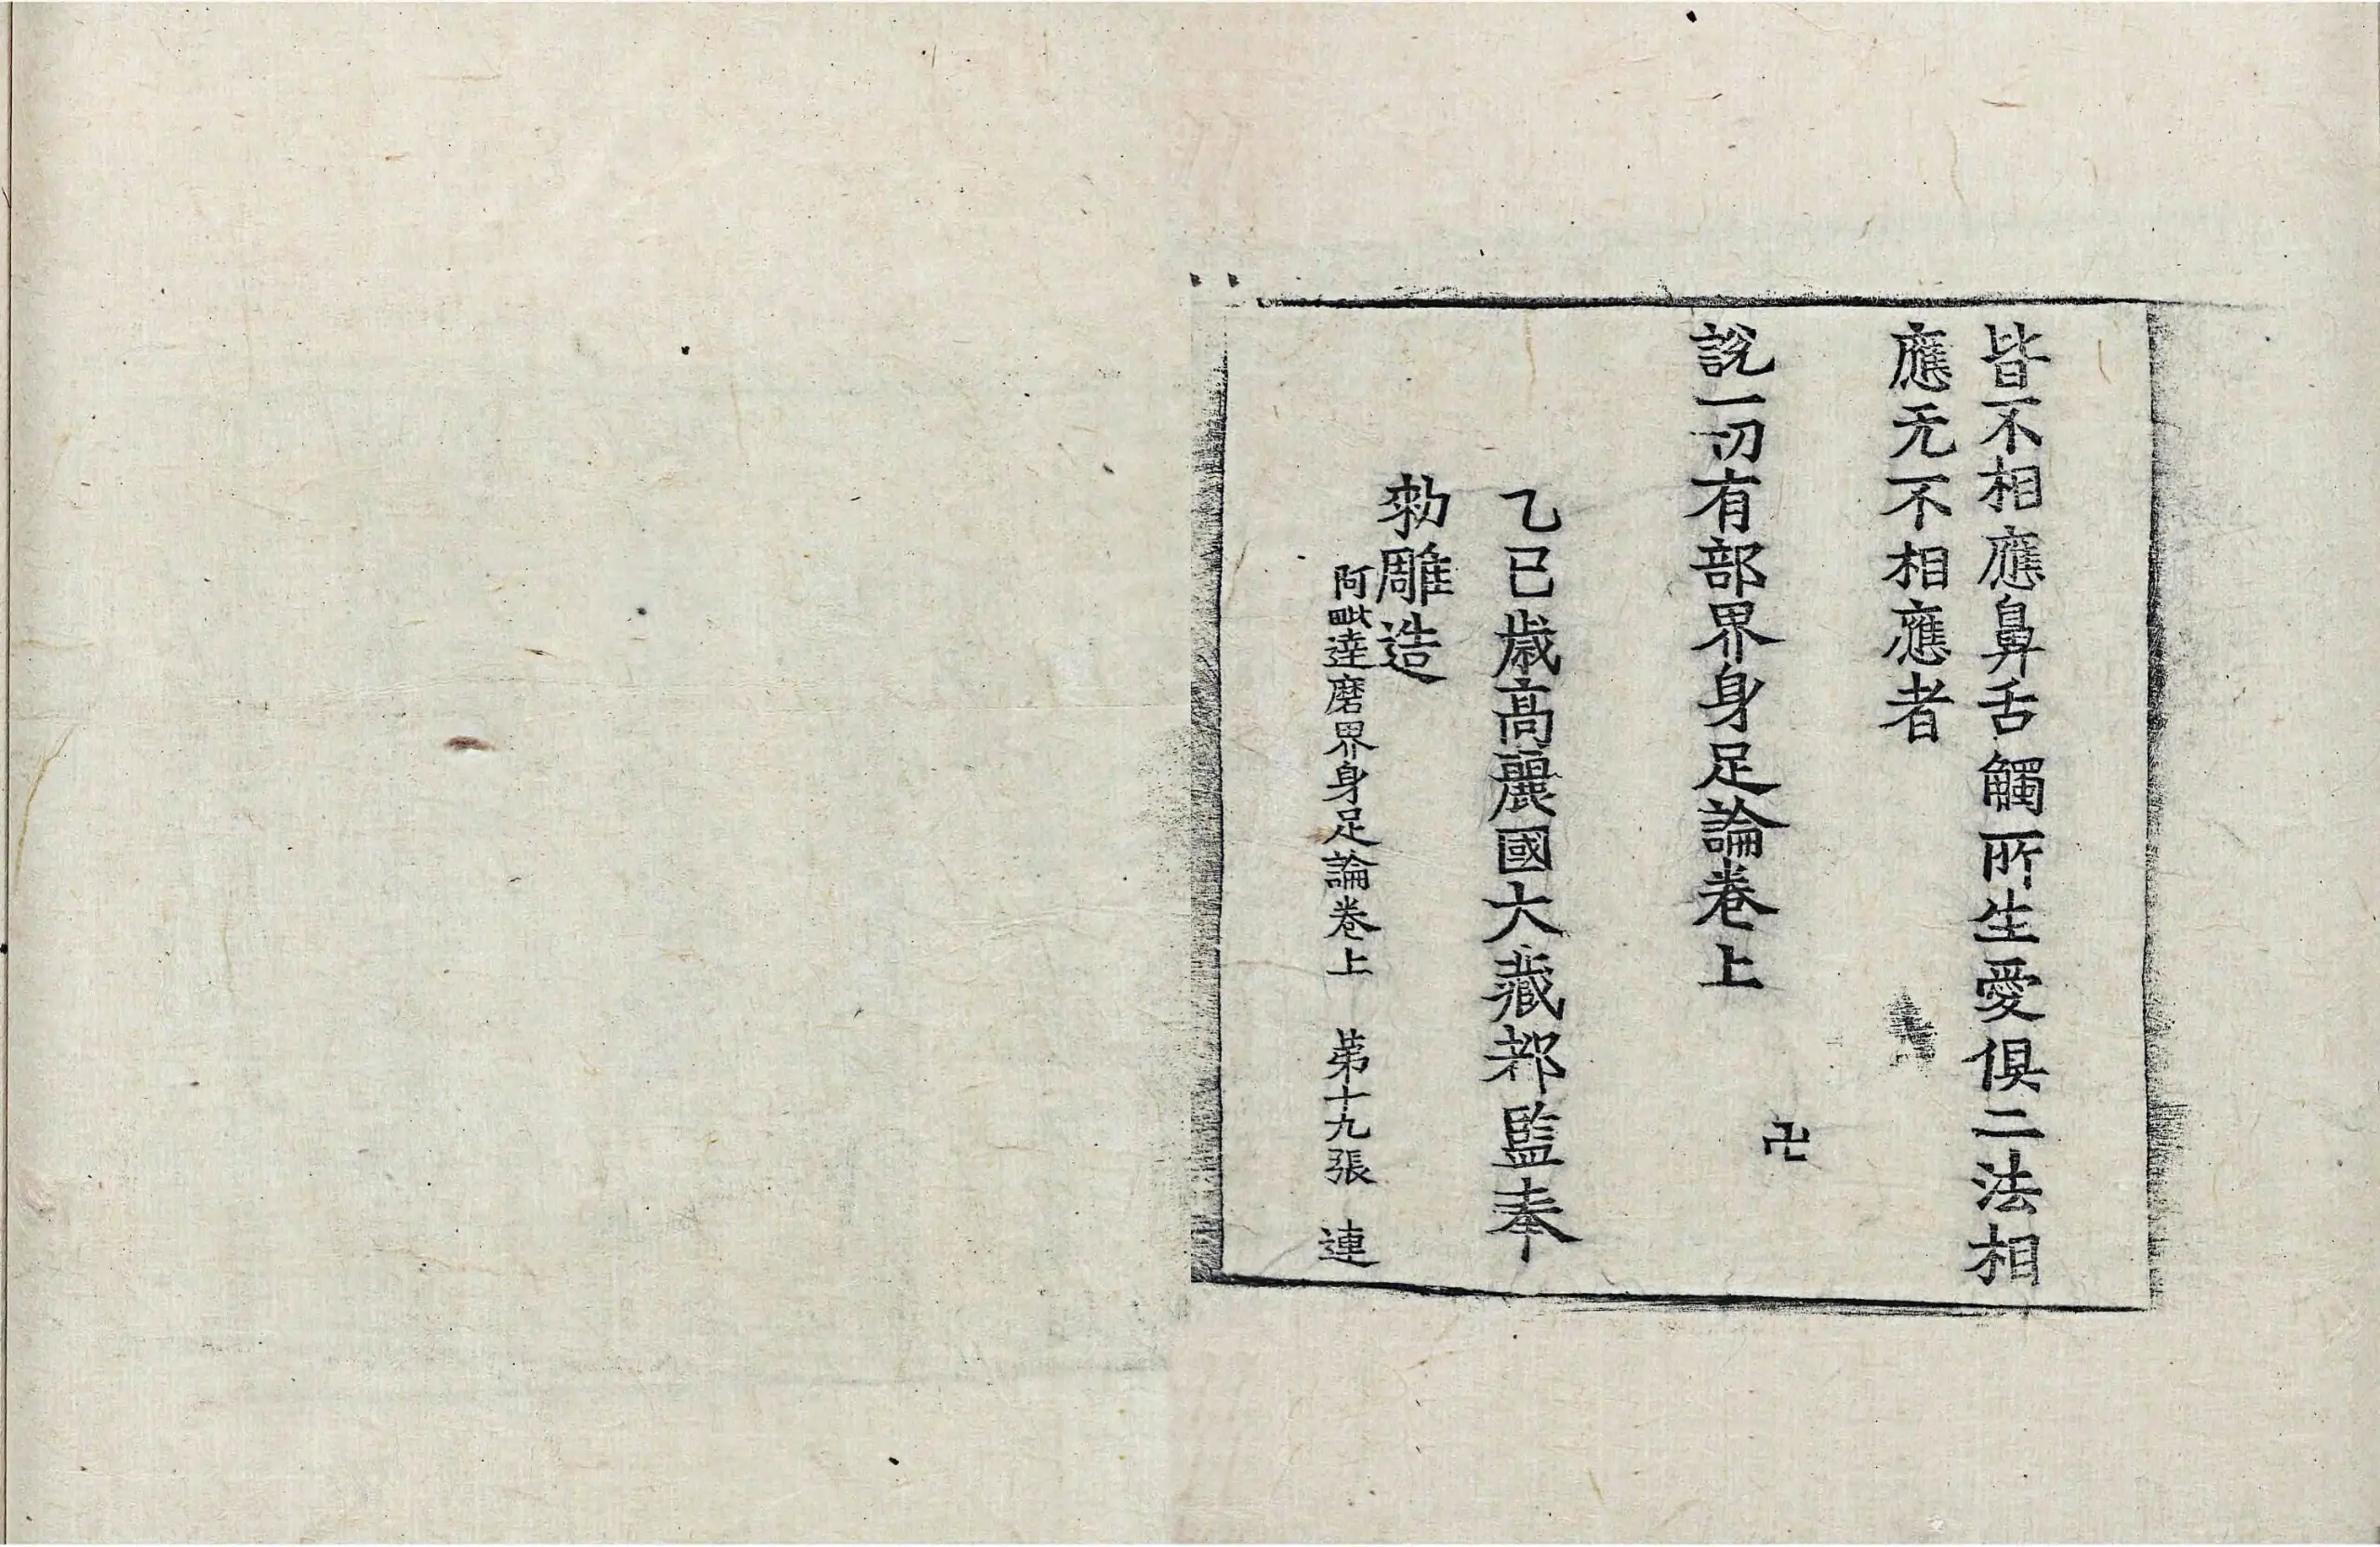 皆不相應鼻舌觸所生愛俱二法相
應无不相應者
卍
說一切有部界身足論卷上
乙巳歲高麗國大藏都監奉
勑雕造
阿毗達磨界身足論卷上 第十九張 連